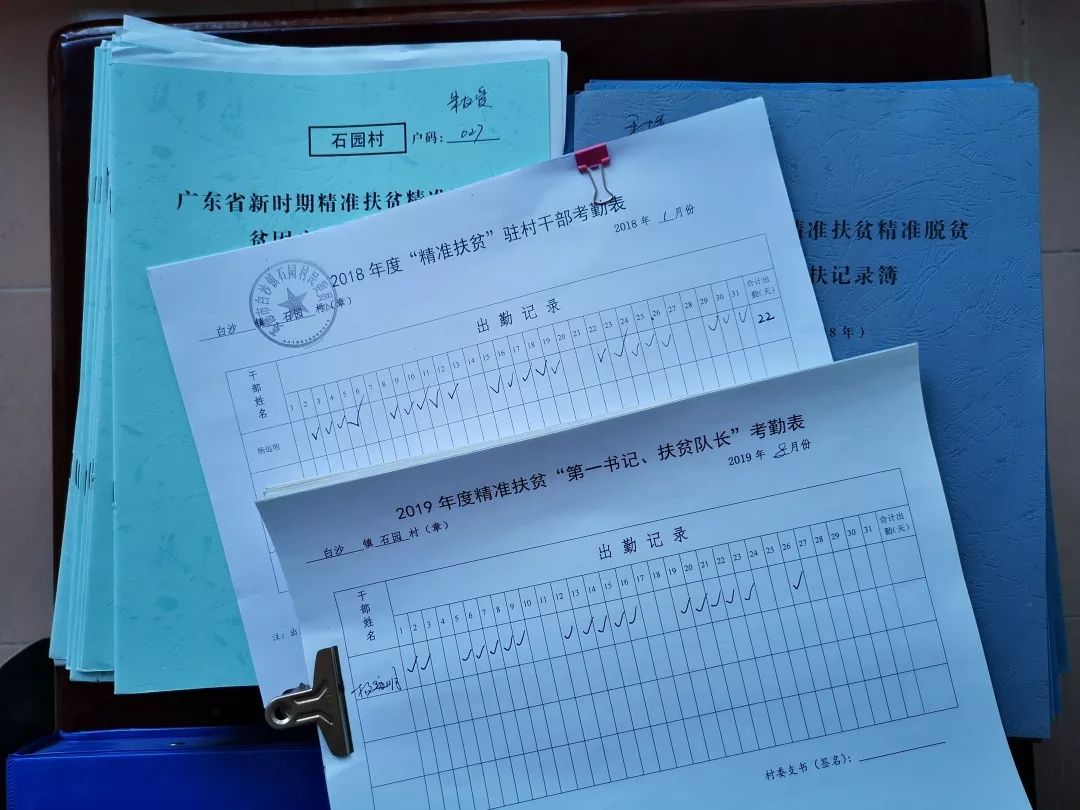 石园村 户码：027
广东省新时期精准扶贫精准
贫困
准扶贫精准脱贫
扶记录簿
8年）
2018 年度“精准扶贫”驻村干部考勤表
2018 年 1 月份
白沙 镇 石园 村（章）
出勤记录
干部姓名
1 2 3 4 5 6 7 8 9 10 11 12 13 14 15 16 17 18 19 20 21 22 23 24 25 26 27 28 29 30 31 合计出勤(天)
杨远明 √ √ √ √ √ √ √ √ √ √ √ √ √ √ √ √ √ √ √ √ √ √ 22
注：出
2019 年度精准扶贫“第一书记、扶贫队长”考勤表
2019 年 8 月份
白沙 镇 石园 村（章）
出勤记录
干部姓名
1 2 3 4 5 6 7 8 9 10 11 12 13 14 15 16 17 18 19 20 21 22 23 24 25 26 27 28 29 30 31 合计出勤(天)
杨远明 √ √ √ √ √ √ √ √ √ √ √ √ √ √ √ √ √
村委支书（签名）：